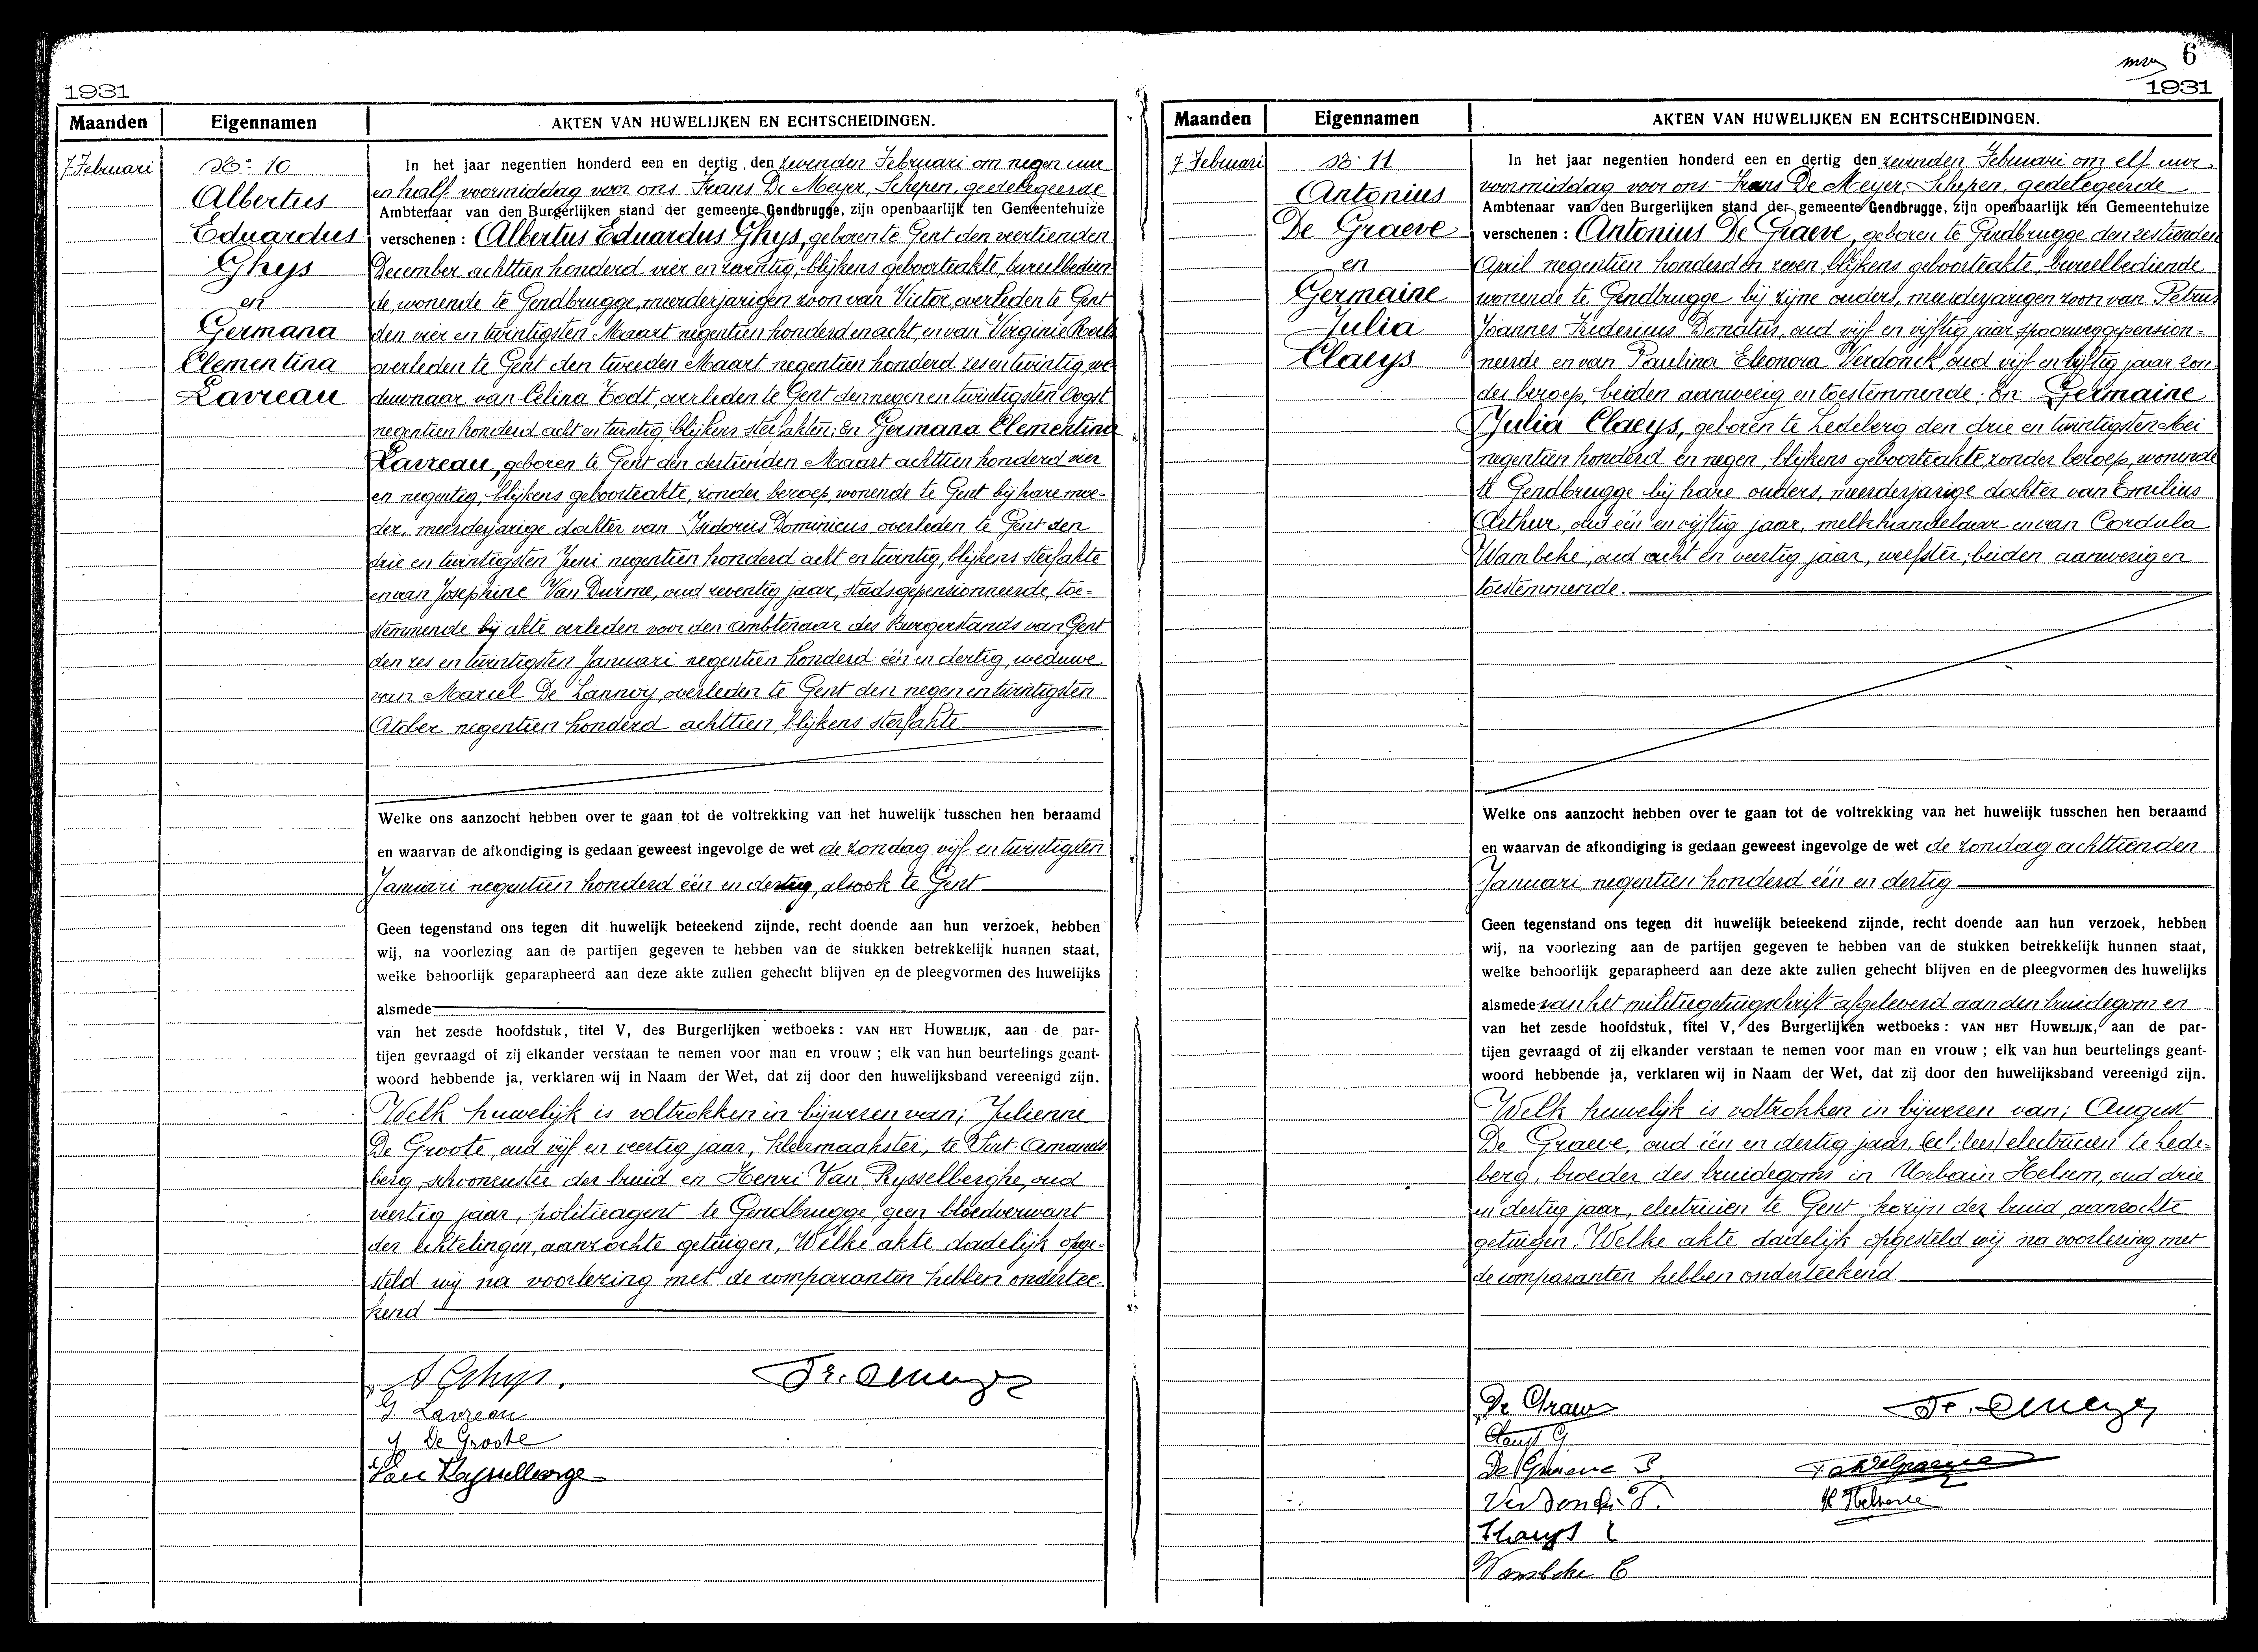 1931
Maanden Eigennamen AKTEN VAN HUWELIJKEN EN ECHTSCHEIDINGEN.
7 Februari
No 10
Albertus
Eduardus
Ghys
en
Germana
Clementina
Lavreau
In het jaar negentien honderd een en dertig den zevenden Februari om negen uur
en half voormiddag voor ons Frans De Meyer, Schepen, gedelegeerde
Ambtenaar van den Burgerlijken stand der gemeente Gendbrugge, zijn openbaarlijk ten Gemeentehuize
verschenen : Albertus Eduardus Ghys, geboren te Gent den veertienden
December achttien honderd vier en tachtig, blijkens geboorteakte bureelbedien
de, wonende te Gendbrugge, meerderjarigen zoon van Victor, overleden te Gent
den vier en twintigsten Maart negentien honderd en acht, en van Virginie Roels
overleden te Gent den tweeden Maart negentien honderd zes en twintig, we
duwnaar van Celina Todt, overleden te Gent den negen en twintigsten Oogst
negentien honderd acht en twintig, blijkens sterfakten; En Germana Clementina
Lavreau, geboren te Gent den dertienden Maart achttien honderd vier
en negentig, blijkens geboorteakte, zonder beroep, wonende te Gent bij hare moe-
der, meerderjarige dochter van Isidorus Dominicus, overleden te Gent den
drie en twintigsten Juni negentien honderd acht en twintig, blijkens sterfakte
en van Josephine Van Durme, oud zeventig jaar, stadsgepensionneerde, toe-
stemmende bij akte verleden voor den Ambtenaar des Burgerstands van Gent
den zes en twintigsten Januari negentien honderd één en dertig, weduwe
van Marcel De Lannoy, overleden te Gent den negen en twintigsten
October negentien honderd achttien, blijkens sterfakte.
Welke ons aanzocht hebben over te gaan tot de voltrekking van het huwelijk tusschen hen beraamd
en waarvan de afkondiging is gedaan geweest ingevolge de wet de zondag vijf en twintigsten
Januari negentien honderd één en dertig, alsook te Gent
Geen tegenstand ons tegen dit huwelijk beteekend zijnde, recht doende aan hun verzoek, hebben
wij, na voorlezing aan de partijen gegeven te hebben van de stukken betrekkelijk hunnen staat,
welke behoorlijk geparapheerd aan deze akte zullen gehecht blijven en de pleegvormen des huwelijks
alsmede
van het zesde hoofdstuk, titel V, des Burgerlijken wetboeks : VAN HET HUWELIJK, aan de par-
tijen gevraagd of zij elkander verstaan te nemen voor man en vrouw ; elk van hun beurtelings geant-
woord hebbende ja, verklaren wij in Naam der Wet, dat zij door den huwelijksband vereenigd zijn.
Welk huwelijk is voltrokken in bijwezen van; Julienne
De Groote, oud vijf en veertig jaar, kleermaakster, te Sint-Amands
berg, schoonzuster der bruid en Henri Van Rysselberghe, oud
veertig jaar, politieagent te Gendbrugge, geen bloedverwant
der echtelingen, aanzochte getuigen, Welke akte dadelijk opge-
steld wij na voorlezing met de comparanten hebben ondertee-
kend
A Ghys.
G. Lavreau
J De Groote
Fr. Demeyer
6
1931
Maanden Eigennamen AKTEN VAN HUWELIJKEN EN ECHTSCHEIDINGEN.
7 Februari
No 11
Antonius
De Graeve
en
Germaine
Julia
Claeys
In het jaar negentien honderd een en dertig den zevenden Februari om elf uur
voormiddag voor ons Frans De Meyer, Schepen, gedelegeerde
Ambtenaar van den Burgerlijken stand der gemeente Gendbrugge, zijn openbaarlijk ten Gemeentehuize
verschenen : Antonius De Graeve, geboren te Gendbrugge den zestienden
April negentien honderd en zeven, blijkens geboorteakte, bureelbediende
wonende te Gendbrugge bij zijne ouders, meerderjarigen zoon van Petrus
Joannes Fredericus Donatus, oud vijf en vijftig jaar, spoorweggepension-
neerde en van Paulina Eleonora Verdonck, oud vijf en vijftig jaar, zon
der beroep, beiden aanwezig en toestemmende; En Germaine
Julia Claeys, geboren te Ledeberg den drie en twintigsten Mei
negentien honderd en negen, blijkens geboorteakte, zonder beroep, wonende
te Gendbrugge bij hare ouders, meerderjarige dochter van Emilius
Arthur, oud één en vijftig jaar, melkhandelaar en van Cordula
Wambeke, oud acht en veertig jaar, weefster, beiden aanwezig en
toestemmende.
Welke ons aanzocht hebben over te gaan tot de voltrekking van het huwelijk tusschen hen beraamd
en waarvan de afkondiging is gedaan geweest ingevolge de wet de zondag achttienden
Januari negentien honderd één en dertig
Geen tegenstand ons tegen dit huwelijk beteekend zijnde, recht doende aan hun verzoek, hebben
wij, na voorlezing aan de partijen gegeven te hebben van de stukken betrekkelijk hunnen staat,
welke behoorlijk geparapheerd aan deze akte zullen gehecht blijven en de pleegvormen des huwelijks
alsmede van het militiegetuigschrift afgeleverd aan den bruidegom en
van het zesde hoofdstuk, titel V, des Burgerlijken wetboeks : VAN HET HUWELIJK, aan de par-
tijen gevraagd of zij elkander verstaan te nemen voor man en vrouw ; elk van hun beurtelings geant-
woord hebbende ja, verklaren wij in Naam der Wet, dat zij door den huwelijksband vereenigd zijn.
Welk huwelijk is voltrokken in bijwezen van; August
De Graeve, oud één en dertig jaar, (lees) electricien te Lede-
berg, broeder des bruidegoms en Urbain Helsen, oud drie
en dertig jaar, electricien te Gent, kozijn der bruid, aanzochte
getuigen. Welke akte dadelijk opgesteld wij na voorlezing met
de comparanten hebben onderteekend
De Graeve
Claeys G
De Graeve P.
Wambeke C
Fr. Demeyer